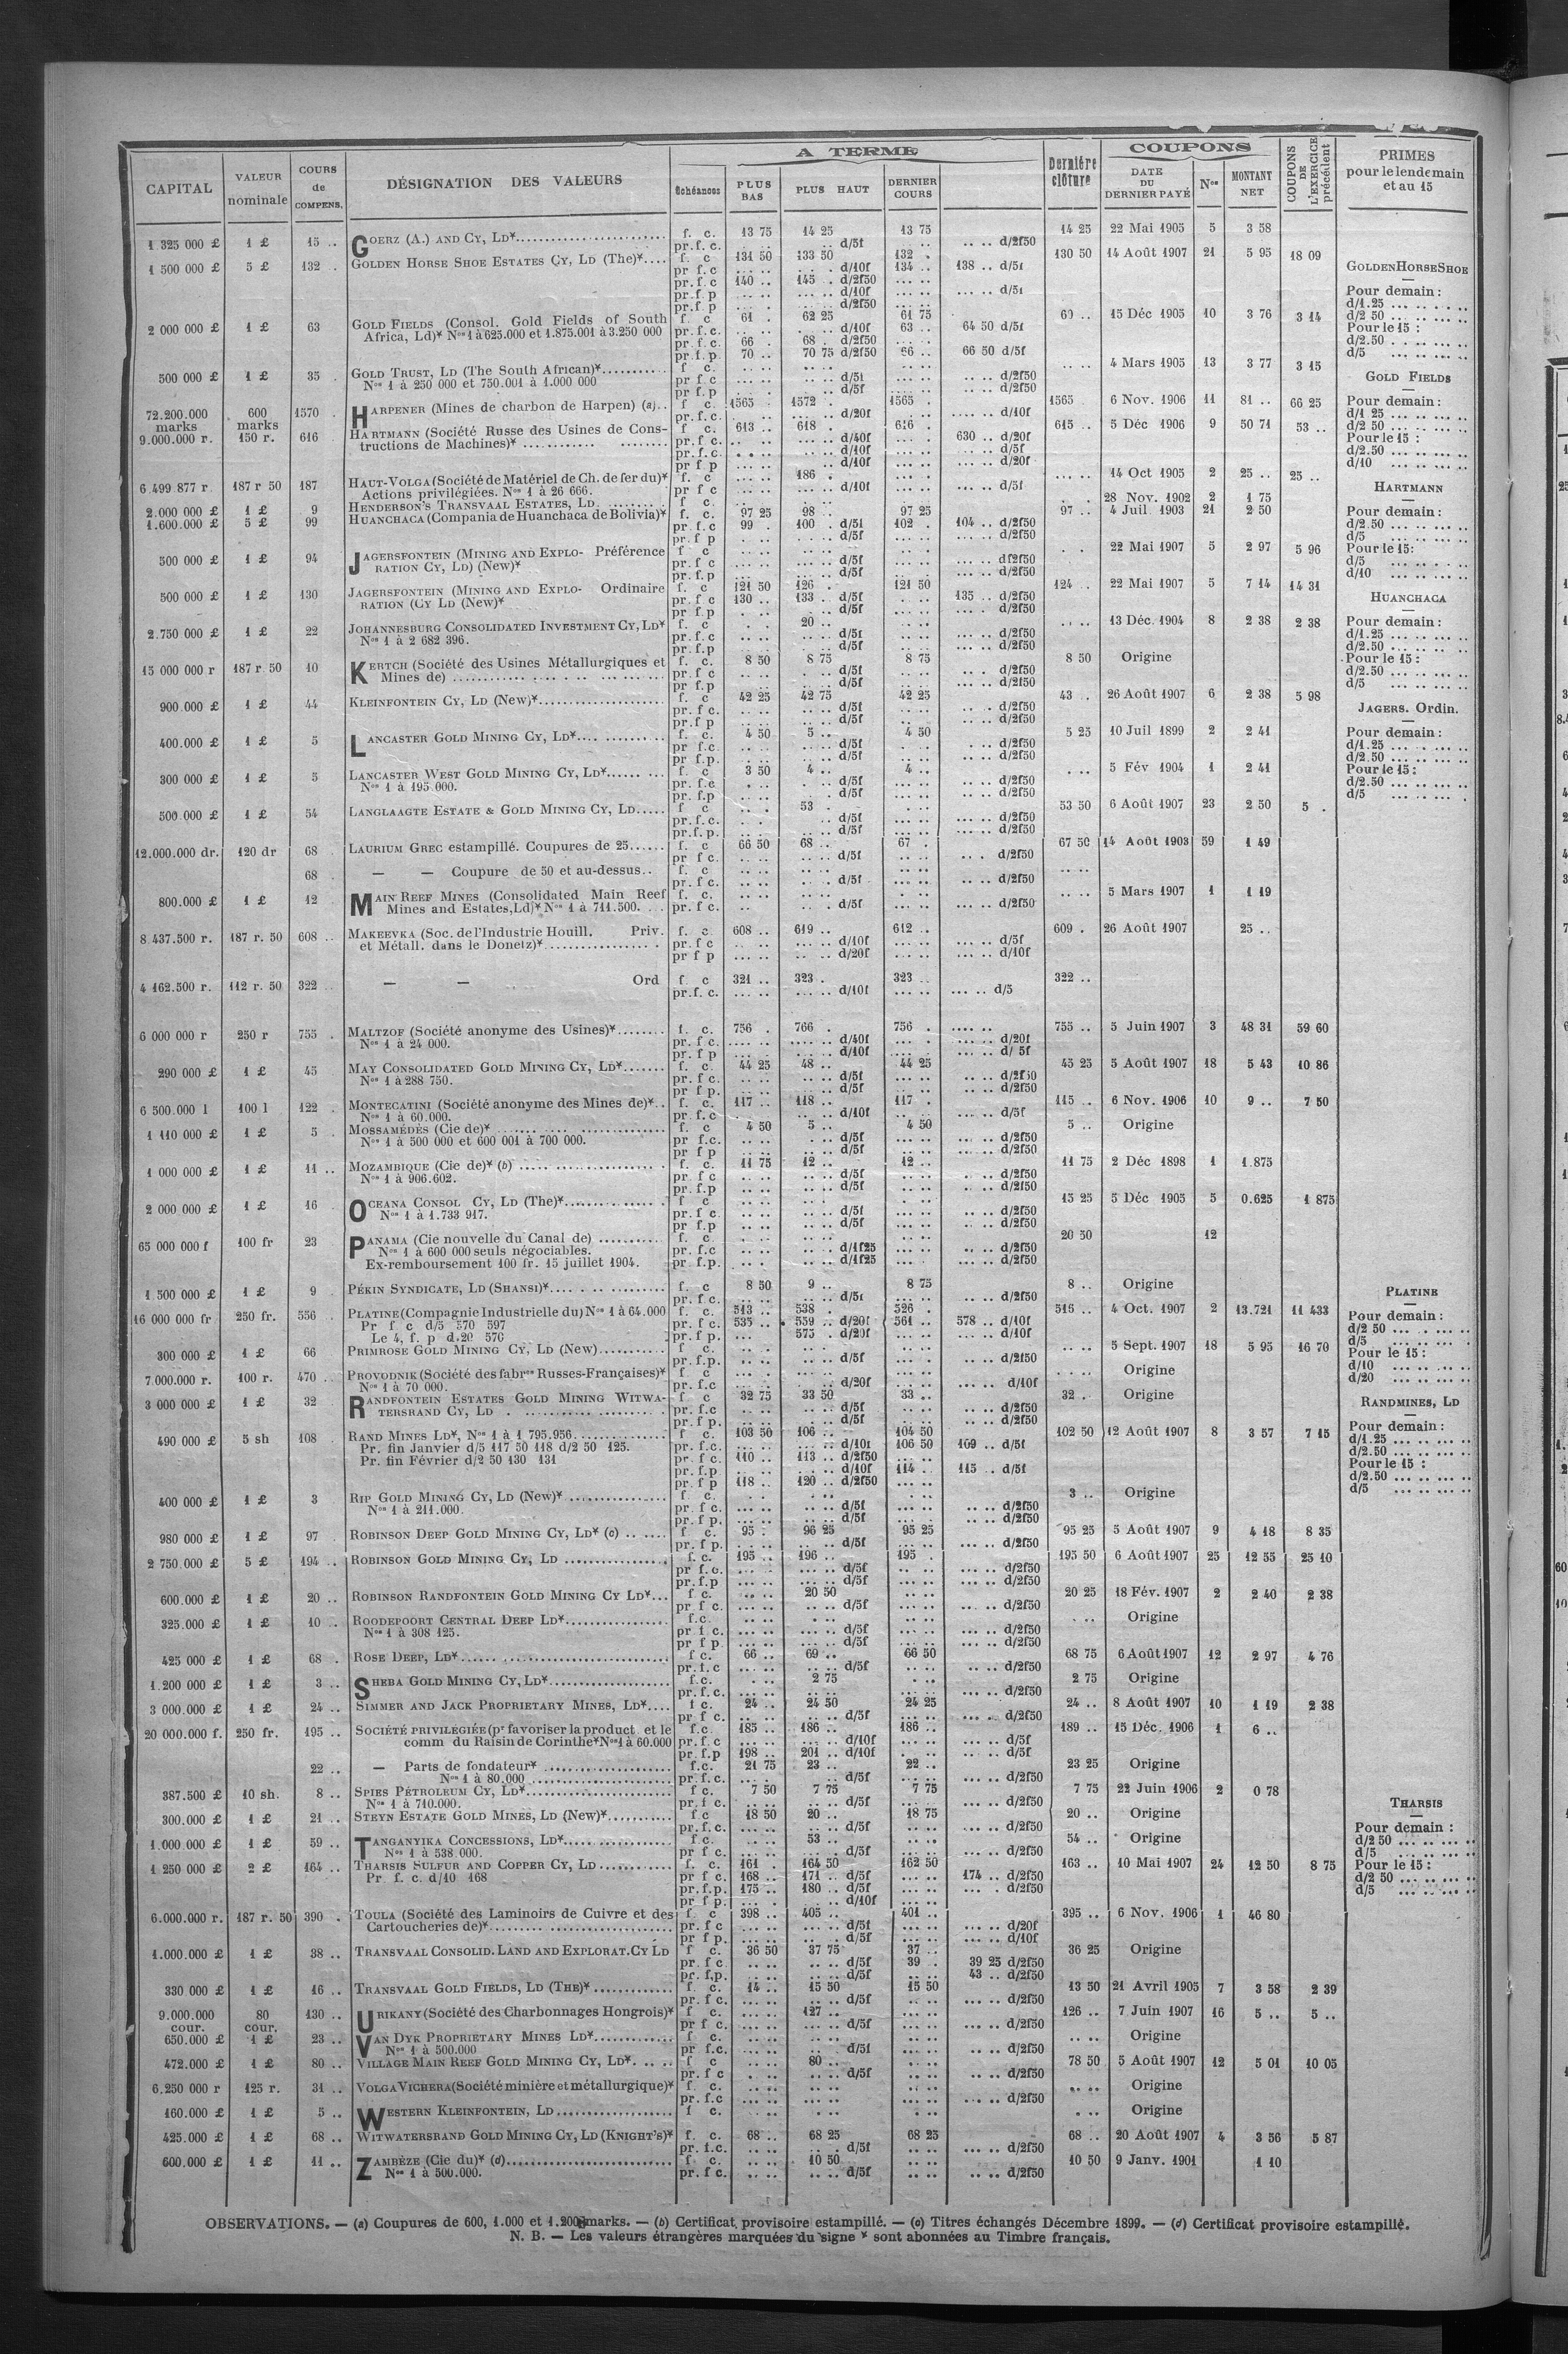 A TERME
COUPONS
CAPITAL
VALEUR nominale
COURS de COMPENS.
DÉSIGNATION DES VALEURS
Échéances
PLUS BAS
PLUS HAUT
DERNIER COURS
Dernière clôture
DATE DU DERNIER PAYÉ
Nos
MONTANT NET
COUPONS DE L'EXERCICE précédent
PRIMES pour le lendemain et au 15
1 325 000 £ 1 £ 15 .. GOERZ (A.) AND CY, LD* f. c. 13 75 14 25 13 75 14 25 22 Mai 1905 5 3 58
pr.f.c. d/5f d/2f50
1 500 000 £ 5 £ 132 . GOLDEN HORSE SHOE ESTATES CY, LD (The)* f. c 131 50 133 50 132 . 130 50 14 Août 1907 21 5 95 18 09
pr f.c d/10f 134 .. 138 .. d/5f
pr.f.c 140 .. 145 . d/2f50
pr.f.p d/10f d/5f
pr.f.p d/2f50
2 000 000 £ 1 £ 63 GOLD FIELDS (Consol. Gold Fields of South f. c. 61 . 62 25 61 75 60 .. 15 Déc 1905 10 3 76 3 14
Africa, Ld)* Nos 1 à 625.000 et 1.875.001 à 3.250 000 pr.f.c. d/10f 63 .. 64 50 d/5f
pr.f.c. 66 . 68 . d/2f50
pr.f.p. 70 .. 70 75 d/2f50 66 .. 66 50 d/5f
500 000 £ 1 £ 35 GOLD TRUST, LD (The South African)* f c. 4 Mars 1905 13 3 77 3 15
Nos 1 à 250 000 et 750.001 à 1.000 000 pr f.c d/5f d/2f50
pr f.p d/5f d/2f50
72.200.000 marks 600 marks 1570 . HARPENER (Mines de charbon de Harpen) (a) f c. 1565 1572 . 1565 . 1565 6 Nov. 1906 11 81 .. 66 25
pr.f.c. d/20f d/10f
9.000.000 r. 150 r. 616 HARTMANN (Société Russe des Usines de Cons- f c. 613 .. 618 . 616 . 615 .. 5 Déc 1906 9 50 71 53 ..
tructions de Machines)* pr.f c. d/40f 630 .. d/20f
pr.f.c. d/10f d/5f
pr f p d/10f d/20f
6 499 877 r 187 r 50 187 HAUT-VOLGA (Société de Matériel de Ch. de fer du)* f. c 186 . 14 Oct 1905 2 25 .. 25 ..
Actions privilégiées. Nos 1 à 26 666. pr f c d/10f d/5f
2.000 000 £ 1 £ 9 HENDERSON'S TRANSVAAL ESTATES, LD. f c. 28 Nov. 1902 2 1 75
1.600.000 £ 5 £ 99 HUANCHACA (Compania de Huanchaca de Bolivia)* f. c. 97 25 98 .. 97 25 97 .. 4 Juil 1903 21 2 50
pr f.c 99 . 100 . d/5f 102 . 104 .. d/2f50
pr.f p d/5f d/2f50
500 000 £ 1 £ 94 JAGERSFONTEIN (MINING AND EXPLO- Préférence f c 22 Mai 1907 5 2 97 5 96
RATION CY, LD) (New)* pr f c d/5f d/2f50
pr.f.p d/5f d/2f50
500 000 £ 1 £ 130 JAGERSFONTEIN (MINING AND EXPLO- Ordinaire f. c 121 50 126 . 121 50 124 .. 22 Mai 1907 5 7 14 14 31
RATION (CY LD (New)* pr f c 130 .. 133 . d/5f 135 .. d/2f50
pr f p d/5f d/2f50
2.750 000 £ 1 £ 22 JOHANNESBURG CONSOLIDATED INVESTMENT CY, LD* f. c 20 .. 13 Déc. 1904 8 2 38 2 38
Nos 1 à 2 682 396. pr.f.c d/5f d/2f50
pr.f.p d/5f d/2f50
15 000 000 r 187 r. 50 10 KERTCH (Société des Usines Métallurgiques et f. c. 8 50 8 75 8 75 8 50 Origine
Mines de) pr.f c d/5f d/2f50
pr f.p d/5f d/2f50
900.000 £ 1 £ 44 KLEINFONTEIN CY, LD (New)* f. c 42 25 42 75 42 25 43 . 26 Août 1907 6 2 38 5 98
pr f c. d/5f d/2f50
pr.f p d/5f d/2f50
400.000 £ 1 £ 5 LANCASTER GOLD MINING CY, LD* f. c. 4 50 5 .. 4 50 5 25 10 Juil 1899 2 2 41
pr f.c. d/5f d/2f50
pr f.p. d/5f d/2f50
300 000 £ 1 £ 5 LANCASTER WEST GOLD MINING CY, LD* f. c 3 50 4 .. 4 .. 5 Fév 1904 1 2 41
Nos 1 à 195.000. pr. f.c d/5f d/2f50
pr. f.p d/5f d/2f50
500.000 £ 1 £ 54 LANGLAAGTE ESTATE & GOLD MINING CY, LD f c 53 . 53 50 6 Août 1907 23 2 50 5 .
pr.f.c. d/5f d/2f50
pr.f.p. d/5f d/2f50
12.000.000 dr. 120 dr 68 LAURIUM GREC estampillé. Coupures de 25 f. c 66 50 68 .. 67 . 67 50 14 Août 1903 59 1 49
pr f c. d/5f d/2f50
68 — — Coupure de 50 et au-dessus f. c
pr. f c. d/5f d/2f50
800.000 £ 1 £ 12 MAIN REEF MINES (Consolidated Main Reef f. c. 5 Mars 1907 1 1 19
Mines and Estates, Ld)* Nos 1 à 711.500. pr. f c. d/5f d/2f50
8 437.500 r. 187 r. 50 608 .. MAKEEVKA (Soc. de l'Industrie Houill. Priv. f. c. 608 .. 619 .. 612 .. 609 . 26 Août 1907 25 ..
et Métall. dans le Donetz)* pr f c d/10f d/5f
pr f p d/20f d/10f
4 162.500 r. 112 r. 50 322 — — Ord f. c 321 .. 323 . 323 .. 322 ..
pr.f. c. d/10f d/5
6 000 000 r 250 r 755 . MALTZOF (Société anonyme des Usines)* f. c. 756 . 766 . 756 . 755 .. 5 Juin 1907 3 48 31 59 60
Nos 1 à 24 000. pr. f c. d/40f d/20f
pr. f p d/10f d/ 5f
290 000 £ 1 £ 45 MAY CONSOLIDATED GOLD MINING CY, LD* f. c. 44 25 48 .. 44 25 45 25 5 Août 1907 18 5 43 10 86
Nos 1 à 288 750. pr. f c. d/5f d/2f50
pr f p. d/5f d/2f50
6 500.000 l 100 l 122 . MONTECATINI (Société anonyme des Mines de)* f. c. 117 .. 118 .. 117 . 115 .. 6 Nov. 1906 10 9 .. 7 50
Nos 1 à 60.000. pr. f.c d/10f d/5f
1 110 000 £ 1 £ 5 . MOSSAMÉDÈS (Cie de)* f. c 4 50 5 .. 4 50 5 .. Origine
Nos 1 à 500 000 et 600 001 à 700 000. pr f.c. d/5f d/2f50
pr f p d/5f d/2f50
1 000 000 £ 1 £ 11 .. MOZAMBIQUE (Cie de)* (b) f. c. 11 75 12 .. 12 .. 11 75 2 Déc 1898 1 1.875
Nos 1 à 906.602. pr f c d/5f d/2f50
pr. f.p d/5f d/2f50
2 000 000 £ 1 £ 16 OCEANA CONSOL CY, LD (The)* f c 15 25 5 Déc 1905 5 0.625 1 875
Nos 1 à 1.733 917. pr f c d/5f d/2f50
pr f.p d/5f d/2f50
65 000 000 f 100 fr 23 PANAMA (Cie nouvelle du Canal de) f. c. 20 50 12
Nos 1 à 600 000 seuls négociables. pr. f.c d/1f25 d/2f50
Ex-remboursement 100 fr. 15 juillet 1904. pr f.p. d/1f25 d/2f50
1 500 000 £ 1 £ 9 PÉKIN SYNDICATE, LD (SHANSI)* f. c 8 50 9 .. 8 75 8 .. Origine
pr. f c. d/5f d/2f50
16 000 000 fr 250 fr. 556 PLATINE (Compagnie Industrielle du) Nos 1 à 64.000 f. c. 513 .. 538 . 526 . 516 .. 4 Oct. 1907 2 13.721 11 433
Pr f c d/5 570 597 pr. f c. 535 .. 559 .. d/20f 561 .. 578 .. d/10f
Le 4, f. p d.20 576 pr. f p. 575 . d/20f d/10f
300 000 £ 1 £ 66 PRIMROSE GOLD MINING CY, LD (New) f c. 5 Sept. 1907 18 5 95 16 70
pr. f.p. d/5f d/2f50
7.000.000 r. 100 r. 470 PROVODNIK (Société des fabres Russes-Françaises)* f c Origine
Nos 1 à 70 000. pr. f.c d/20f d/10f
3 000 000 £ 1 £ 32 RANDFONTEIN ESTATES GOLD MINING WITWA- f c 32 75 33 50 33 .. 32 . Origine
TERSRAND CY, LD pr. f.c d/5f d/2f50
pr. f p. d/5f d/2f50
490 000 £ 5 sh 108 RAND MINES LD*, Nos 1 à 1 795.956. f c. 103 50 106 .. 104 50 102 50 12 Août 1907 8 3 57 7 15
Pr. fin Janvier d/5 117 50 118 d/2 50 125. pr. f.c. d/10f 106 50 109 .. d/5f
Pr. fin Février d/2 50 130 131 pr. f c. 110 .. 113 .. d/2f50
pr. f.p d/10f 114 .. 115 .. d/5f
pr f p 118 .. 120 .. d/2f50
400 000 £ 1 £ 3 RIP GOLD MINING CY, LD (New)* f c. 3 .. Origine
Nos 1 à 211.000. pr. f c. d/5f d/2f50
pr. f p. d/5f d/2f50
980 000 £ 1 £ 97 ROBINSON DEEP GOLD MINING CY, LD* (c) f c. 95 . 96 25 95 25 95 25 5 Août 1907 9 4 18 8 35
pr. f p. d/5f d/2f50
2 750.000 £ 5 £ 194 .. ROBINSON GOLD MINING CY, LD f. c. 195 .. 196 .. 195 . 195 50 6 Août 1907 25 12 55 25 10
pr f.c. d/5f d/2f50
pr.f.p d/5f d/2f50
600.000 £ 1 £ 20 .. ROBINSON RANDFONTEIN GOLD MINING CY LD* f c. 20 50 20 25 18 Fév. 1907 2 2 40 2 38
pr f c. d/5f d/2f50
325.000 £ 1 £ 10 .. ROODEPOORT CENTRAL DEEP LD* f.c. Origine
Nos 1 à 308 125. pr f c. d/5f d/2f50
pr f p. d/5f d/2f50
425 000 £ 1 £ 68 . ROSE DEEP, LD* f c. 66 .. 69 .. 66 50 68 75 6 Août 1907 12 2 97 4 76
pr.f.c d/5f d/2f50
1.200 000 £ 1 £ 3 .. SHEBA GOLD MINING CY, LD* f.c. 2 75 2 75 Origine
pr.f.c. d/2f50
3 000.000 £ 1 £ 24 .. SIMMER AND JACK PROPRIETARY MINES, LD* f c. 24 .. 24 50 24 25 24 .. 8 Août 1907 10 1 19 2 38
pr f c. d/5f d/2f50
20 000.000 f. 250 fr. 195 .. SOCIÉTÉ PRIVILÉGIÉE (pr favoriser la product et le f.c. 185 .. 186 .. 186 .. 189 .. 15 Déc. 1906 1 6 ..
comm du Raisin de Corinthe* Nos 1 à 60.000 pr. f c d/10f d/5f
pr. f.p 198 .. 201 .. d/10f d/5f
22 .. — Parts de fondateur* f.c. 21 75 23 .. 22 .. 23 25 Origine
Nos 1 à 80.000 pr. f. c. d/5f d/2f50
387.500 £ 10 sh. 8 .. SPIES PÉTROLEUM CY, LD* f c. 7 50 7 75 7 75 7 75 22 Juin 1906 2 0 78
Nos 1 à 710.000. pr. f c. d/5f d/2f50
300.000 £ 1 £ 21 .. STEYN ESTATE GOLD MINES, LD (New)* f c 18 50 20 .. 18 75 20 .. Origine
pr. f. c. d/5f d/2f50
1.000 000 £ 1 £ 59 .. TANGANYIKA CONCESSIONS, LD* f c. 53 .. 54 .. Origine
Nos 1 à 538 000. pr f c. d/5f d/2f50
1 250 000 £ 2 £ 164 .. THARSIS SULFUR AND COPPER CY, LD f. c. 161 . 164 50 162 50 163 .. 10 Mai 1907 24 12 50 8 75
Pr f. c. d/10 168 pr f c. 168 .. 171 .. d/5f 174 .. d/2f50
pr. f.p. 175 .. 180 .. d/5f d/2f50
pr f p. d/10f
6.000.000 r. 187 r. 50 390 . TOULA (Société des Laminoirs de Cuivre et des f c 398 .. 405 .. 401 .. 395 .. 6 Nov. 1906 1 46 80
Cartoucheries de)* pr. f c d/5f d/20f
pr f p. d/5f d/10f
1.000.000 £ 1 £ 38 .. TRANSVAAL CONSOLID. LAND AND EXPLORAT. CY LD f c. 36 50 37 75 37 .. 36 25 Origine
pr. f c. d/5f 39 . 39 25 d/2f50
pr. f.p. d/5f 43 .. d/2f50
330 000 £ 1 £ 16 .. TRANSVAAL GOLD FIELDS, LD (THE)* f. c. 14 .. 15 50 15 50 13 50 21 Avril 1905 7 3 58 2 39
pr. f c. d/5f d/2f50
9.000.000 cour. 80 cour. 130 .. URIKANY (Société des Charbonnages Hongrois)* f c. 127 .. 126 .. 7 Juin 1907 16 5 .. 5 ..
pr f c. d/5f d/2f50
650.000 £ 1 £ 23 .. VAN DYK PROPRIETARY MINES LD* f c. Origine
Nos 1 à 500.000 pr. f.c. d/5f d/2f50
472.000 £ 1 £ 80 .. VILLAGE MAIN REEF GOLD MINING CY, LD* f c 80 .. 78 50 5 Août 1907 12 5 01 10 05
pr. f c d/5f d/2f50
6.250 000 r 125 r. 31 .. VOLGA VICHERA (Société minière et métallurgique)* f c. Origine
pr. f.c d/2f50
160.000 £ 1 £ 5 .. WESTERN KLEINFONTEIN, LD f c. Origine
425.000 £ 1 £ 68 .. WITWATERSRAND GOLD MINING CY, LD (KNIGHT'S)* f. c. 68 .. 68 25 68 25 68 .. 20 Août 1907 4 3 56 5 87
pr. f.c. d/5f d/2f50
600.000 £ 1 £ 11 .. ZAMBÈZE (Cie du)* (d) f c. 10 50 10 50 9 Janv. 1901 1 10
Nos 1 à 500.000. pr. f c. d/5f d/2f50
GOLDEN HORSE SHOE
Pour demain :
d/1.25
d/2 50
Pour le 15 :
d/2.50
d/5
GOLD FIELDS
Pour demain :
d/1 25
d/2 50
Pour le 15 :
d/2.50
d/10
HARTMANN
Pour demain :
d/2.50
d/5
Pour le 15 :
d/5
d/10
HUANCHACA
Pour demain :
d/1.25
d/2.50
Pour le 15 :
d/2.50
d/5
JAGERS. Ordin.
Pour demain :
d/1.25
d/2.50
Pour le 15 :
d/2.50
d/5
PLATINE
Pour demain :
d/2 50
d/5
Pour le 15 :
d/10
d/20
RANDMINES, LD
Pour demain :
d/1.25
d/2.50
Pour le 15 :
d/2.50
d/5
THARSIS
Pour demain :
d/2 50
d/5
Pour le 15 :
d/2 50
d/5
OBSERVATIONS. — (a) Coupures de 600, 1.000 et 1.200 marks. — (b) Certificat provisoire estampillé. — (c) Titres échangés Décembre 1899. — (d) Certificat provisoire estampillé.
N. B. — Les valeurs étrangères marquées du signe * sont abonnées au Timbre français.